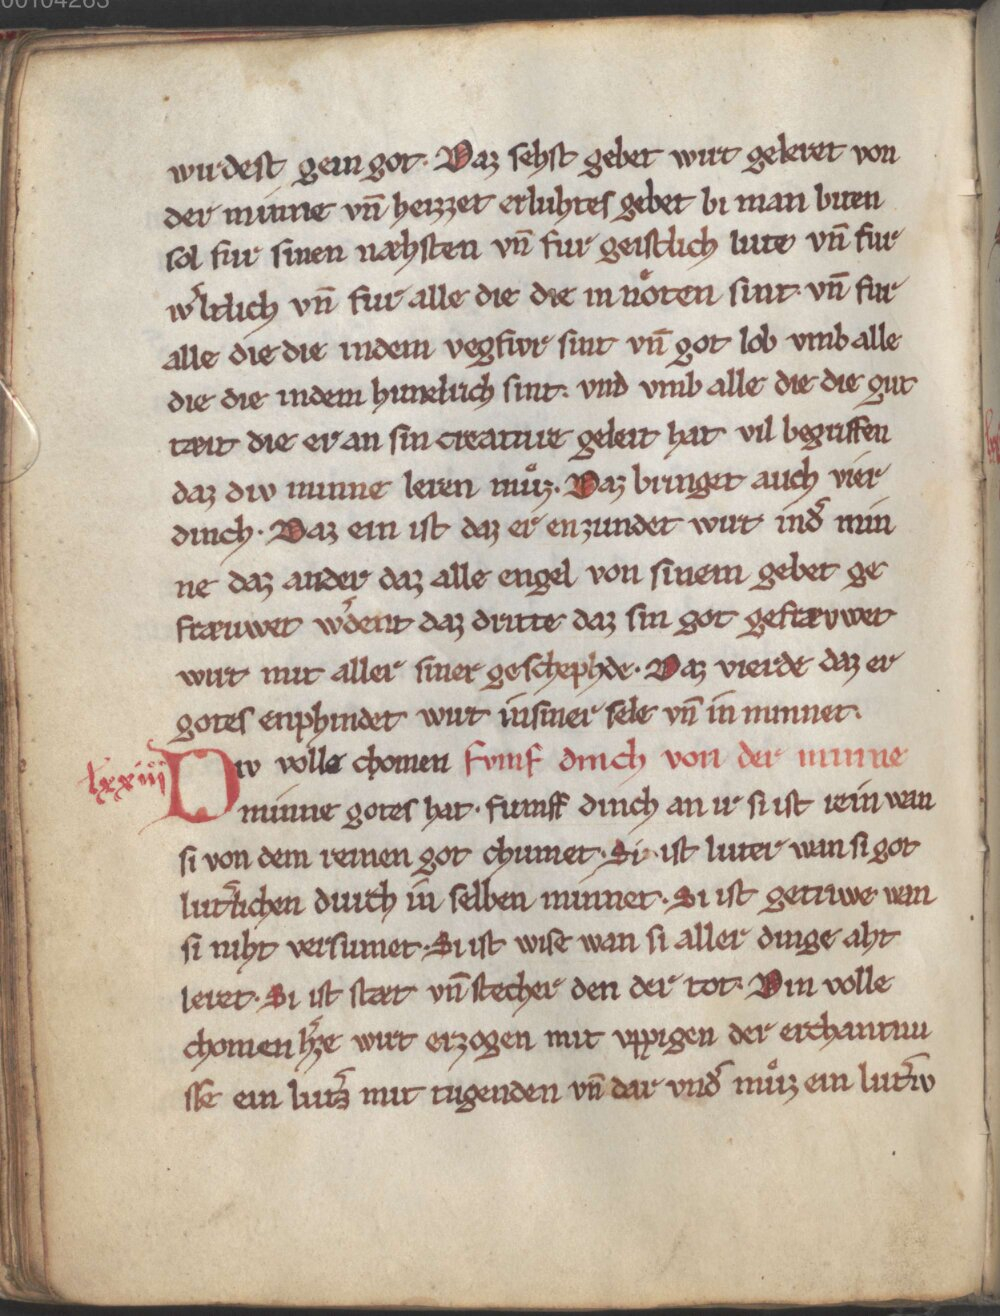 00104265
wirdest gein got. Daz sehst gebet wirt geleret von
der minne vn̄ heizzet erluhtes gebet bi man biten
sol fur sinen næhsten vn̄ fur geistlich lute vn̄ fur
w͛ltlich vn̄ fur alle die die in nͦoten sint. vn̄ fur
alle die die indem vegfiwr sint vn̄ got lob vmb alle
die die indem himelrich sint. vnd vmb alle die die gut
tæt die er an sin creature geleit hat vil begriffen
daz div minne leren mͦuz. Daz bringet auch vier
dinch. Daz ein ist daz er enzundet wirt ind͛ min
ne daz ander daz alle engel von sinem gebet ge
fræuwet w͛dent daz dritte daz sin got gefræwet
wirt mit aller siner geschephde. Daz vierde daz er
gotes enphindet wirt in siner sele vn̄ in minnet.
lxxiii
Div volle chomen funf dinch von der minne
minne gotes hat. fumff dinch an ir si ist rein wan
si von dem reinen got chumet. Si ist luter wan si got
lut͛lichen durch in selben minnet. Si ist getriwe wan
si niht versumet. Si ist wise wan si aller dinge aht
leret. Si ist stæt vn̄ stecher den der tot. Din volle
chomen h͛ze wirt erzogen mit vppigen der erchantnu
sse ein lut͛z mit tugenden vn̄ dar vnd͛ mͦuz ein lut͛iv